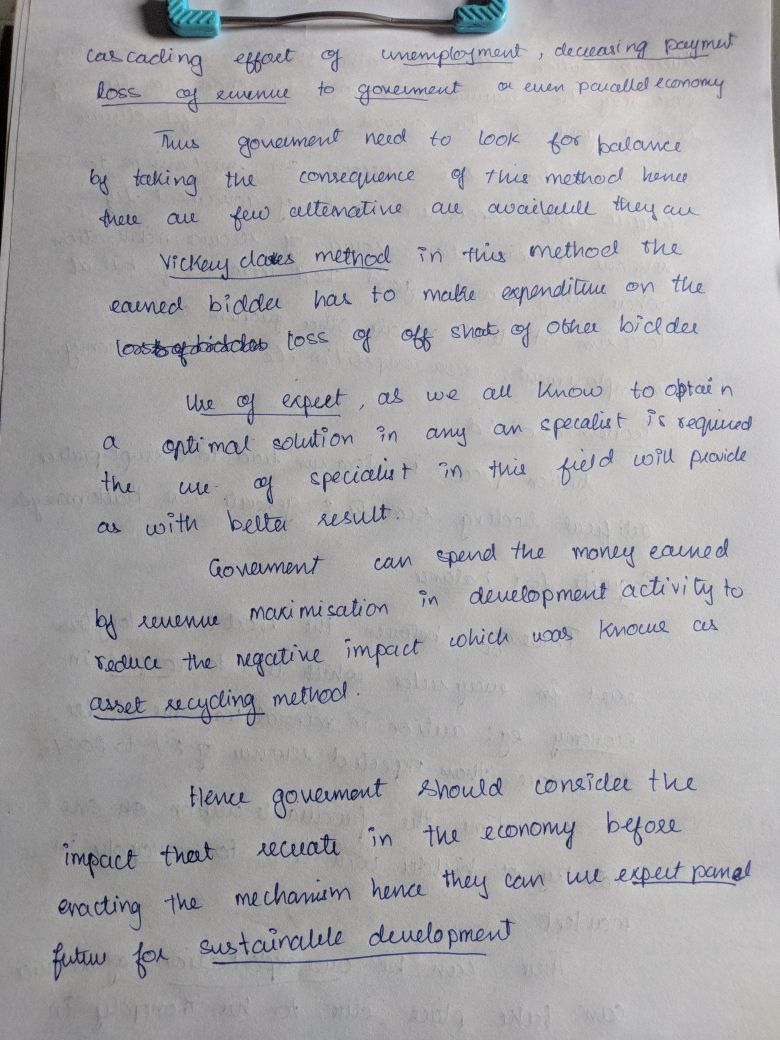 cascading effect of unemployment, decreasing payment
loss of revenue to goverment or even parallel economy
Thus goverment need to look for balance
by taking the consequence of this method hence
there are few alternative are available they are
Vickery method in this method the
earned bidder has to make expenditure on the
loss of off shot of other bidder
Use of expert, as we all know to optain
a optimal solution in any an specalist is required
the use of specialist in this field will provide
as with better result.
Goverment can spend the money earned
by revenue maximisation in development activity to
reduce the negative impact which was known as
asset recycling method.
Hence goverment should consider the
impact that in the economy before
enacting the mechanism hence they can use expert panel
future for sustainable development